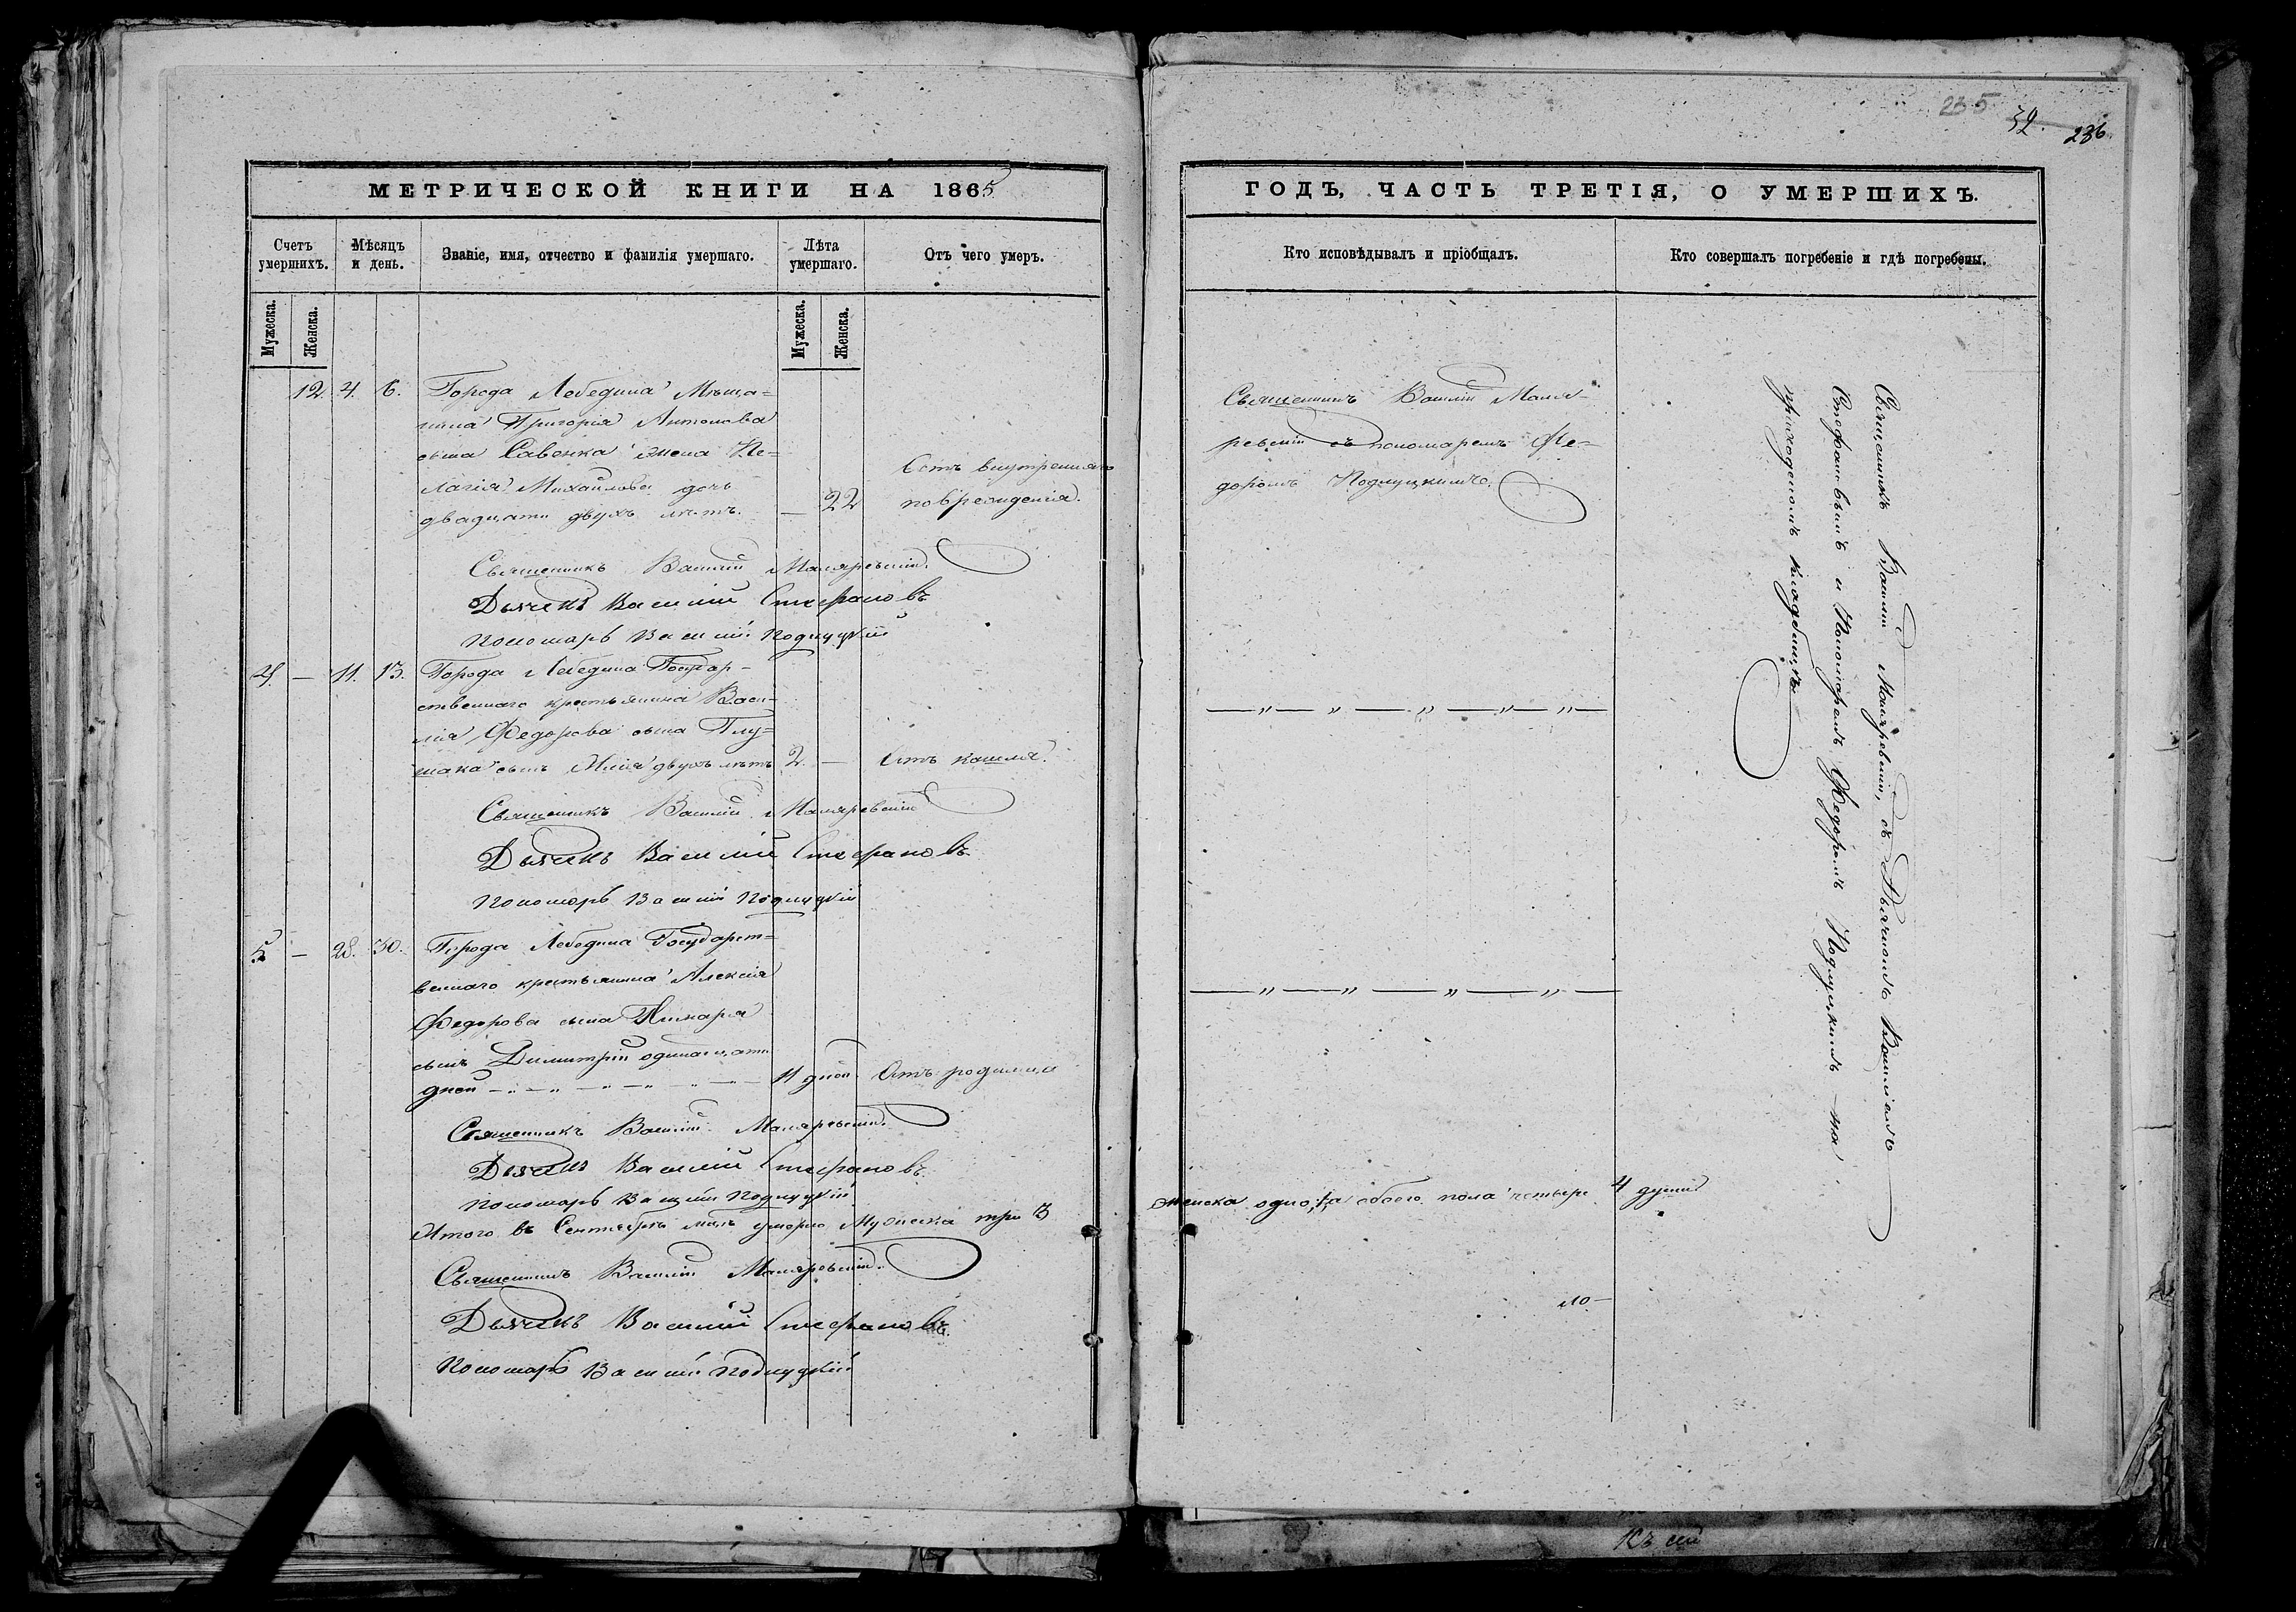 МЕТРИЧЕСКОЙ КНИГИ НА 1865
Счетъ умершихъ.
Мѣсяцъ и день.
Званіе, имя, отчество и фамилія умершаго.
Лѣта умершаго.
Отъ чего умеръ.
Мужеска.
Женска.
Мужеска.
Женска.
12. 4. 6. Города Лебедина Мѣща=
нина Григорія Антонова
сына Савенка жена Пе=
лагія Михайлова дочь
двадцати двухъ лѣтъ. — 22
Отъ внутренняго
поврежденія.
Священникъ Василій Маляревскій.
Дьячекъ Василій Стефановъ
Пономарь Василій Подлуцкій
4. — 11. 13. Города Лебедина Государ-
ственнаго крестьянина Васи-
лія Федорова сына Глу=
шака сынъ Илія двухъ лѣтъ 2. — Отъ кашля.
Священникъ Василій Маляревскій
Дьячекъ Василій Стефановъ
Пономарь Василій Подлуцкій
5. — 28. 30. Города Лебедина Государст=
веннаго крестьянина Алексія
Федорова сына
сынъ Димитрій одинадцати
дней 11 дней Отъ родимца
Священникъ Василій Маляревскій.
Дьячекъ Василій Стефановъ
Пономарь Василій Подлуцкій
Итого въ Сентябрѣ м-цѣ умерло Мужеска три 3
Священникъ Василій Маляревскій.
Дьячекъ Василій Стефановъ
Пономарь Василій Подлуцкій
235
32.
236
ГОДЪ, ЧАСТЬ ТРЕТІЯ, О УМЕРШИХЪ.
Кто исповѣдывалъ и пріобщалъ.
Кто совершалъ погребеніе и гдѣ погребены.
Священникъ Василій Маля-
ревскій съ пономаремъ Фе-
доромъ Подлуцкимъ.
— „ — „ — „ — „ — „ —
— „ — „ — „ — „ —
Священникъ Василій Маляревскій, съ Дьячкомъ Василіемъ
Стефановымъ и Пономаремъ Федоромъ Подлуцкимъ на
приходскомъ кладбищѣ
женска одно, а обоего пола четыре 4 души